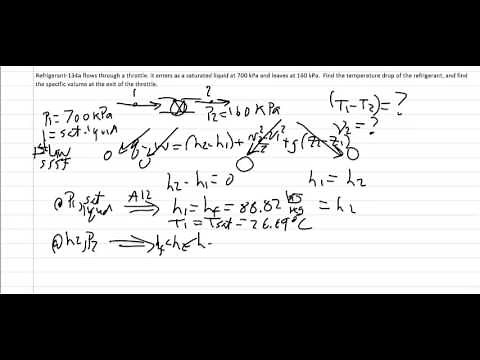 Refrigerant-134a flows through a throttle. It enters as a saturated liquid at 700 kPa and leaves at 160 kPa. Find the temperature drop of the refrigerant, and find
the specific volume at the exit of the throttle.
1 2
P₁=700kPa P₂=160kPa (T₁-T₂)=?
1=sat liquid v₂=?
1st Law
SSSF
0 0 q-w=(h₂-h₁)+(v₂²-v₁²)/2+g(z₂-z₁)
h₂-h₁=0 h₁=h₂
@P₁,sat liquid A12 h₁=hf=88.82 kJ/kg =h₂
T₁=Tsat=26.69°C
@h₂,P₂ hf<h₂<h